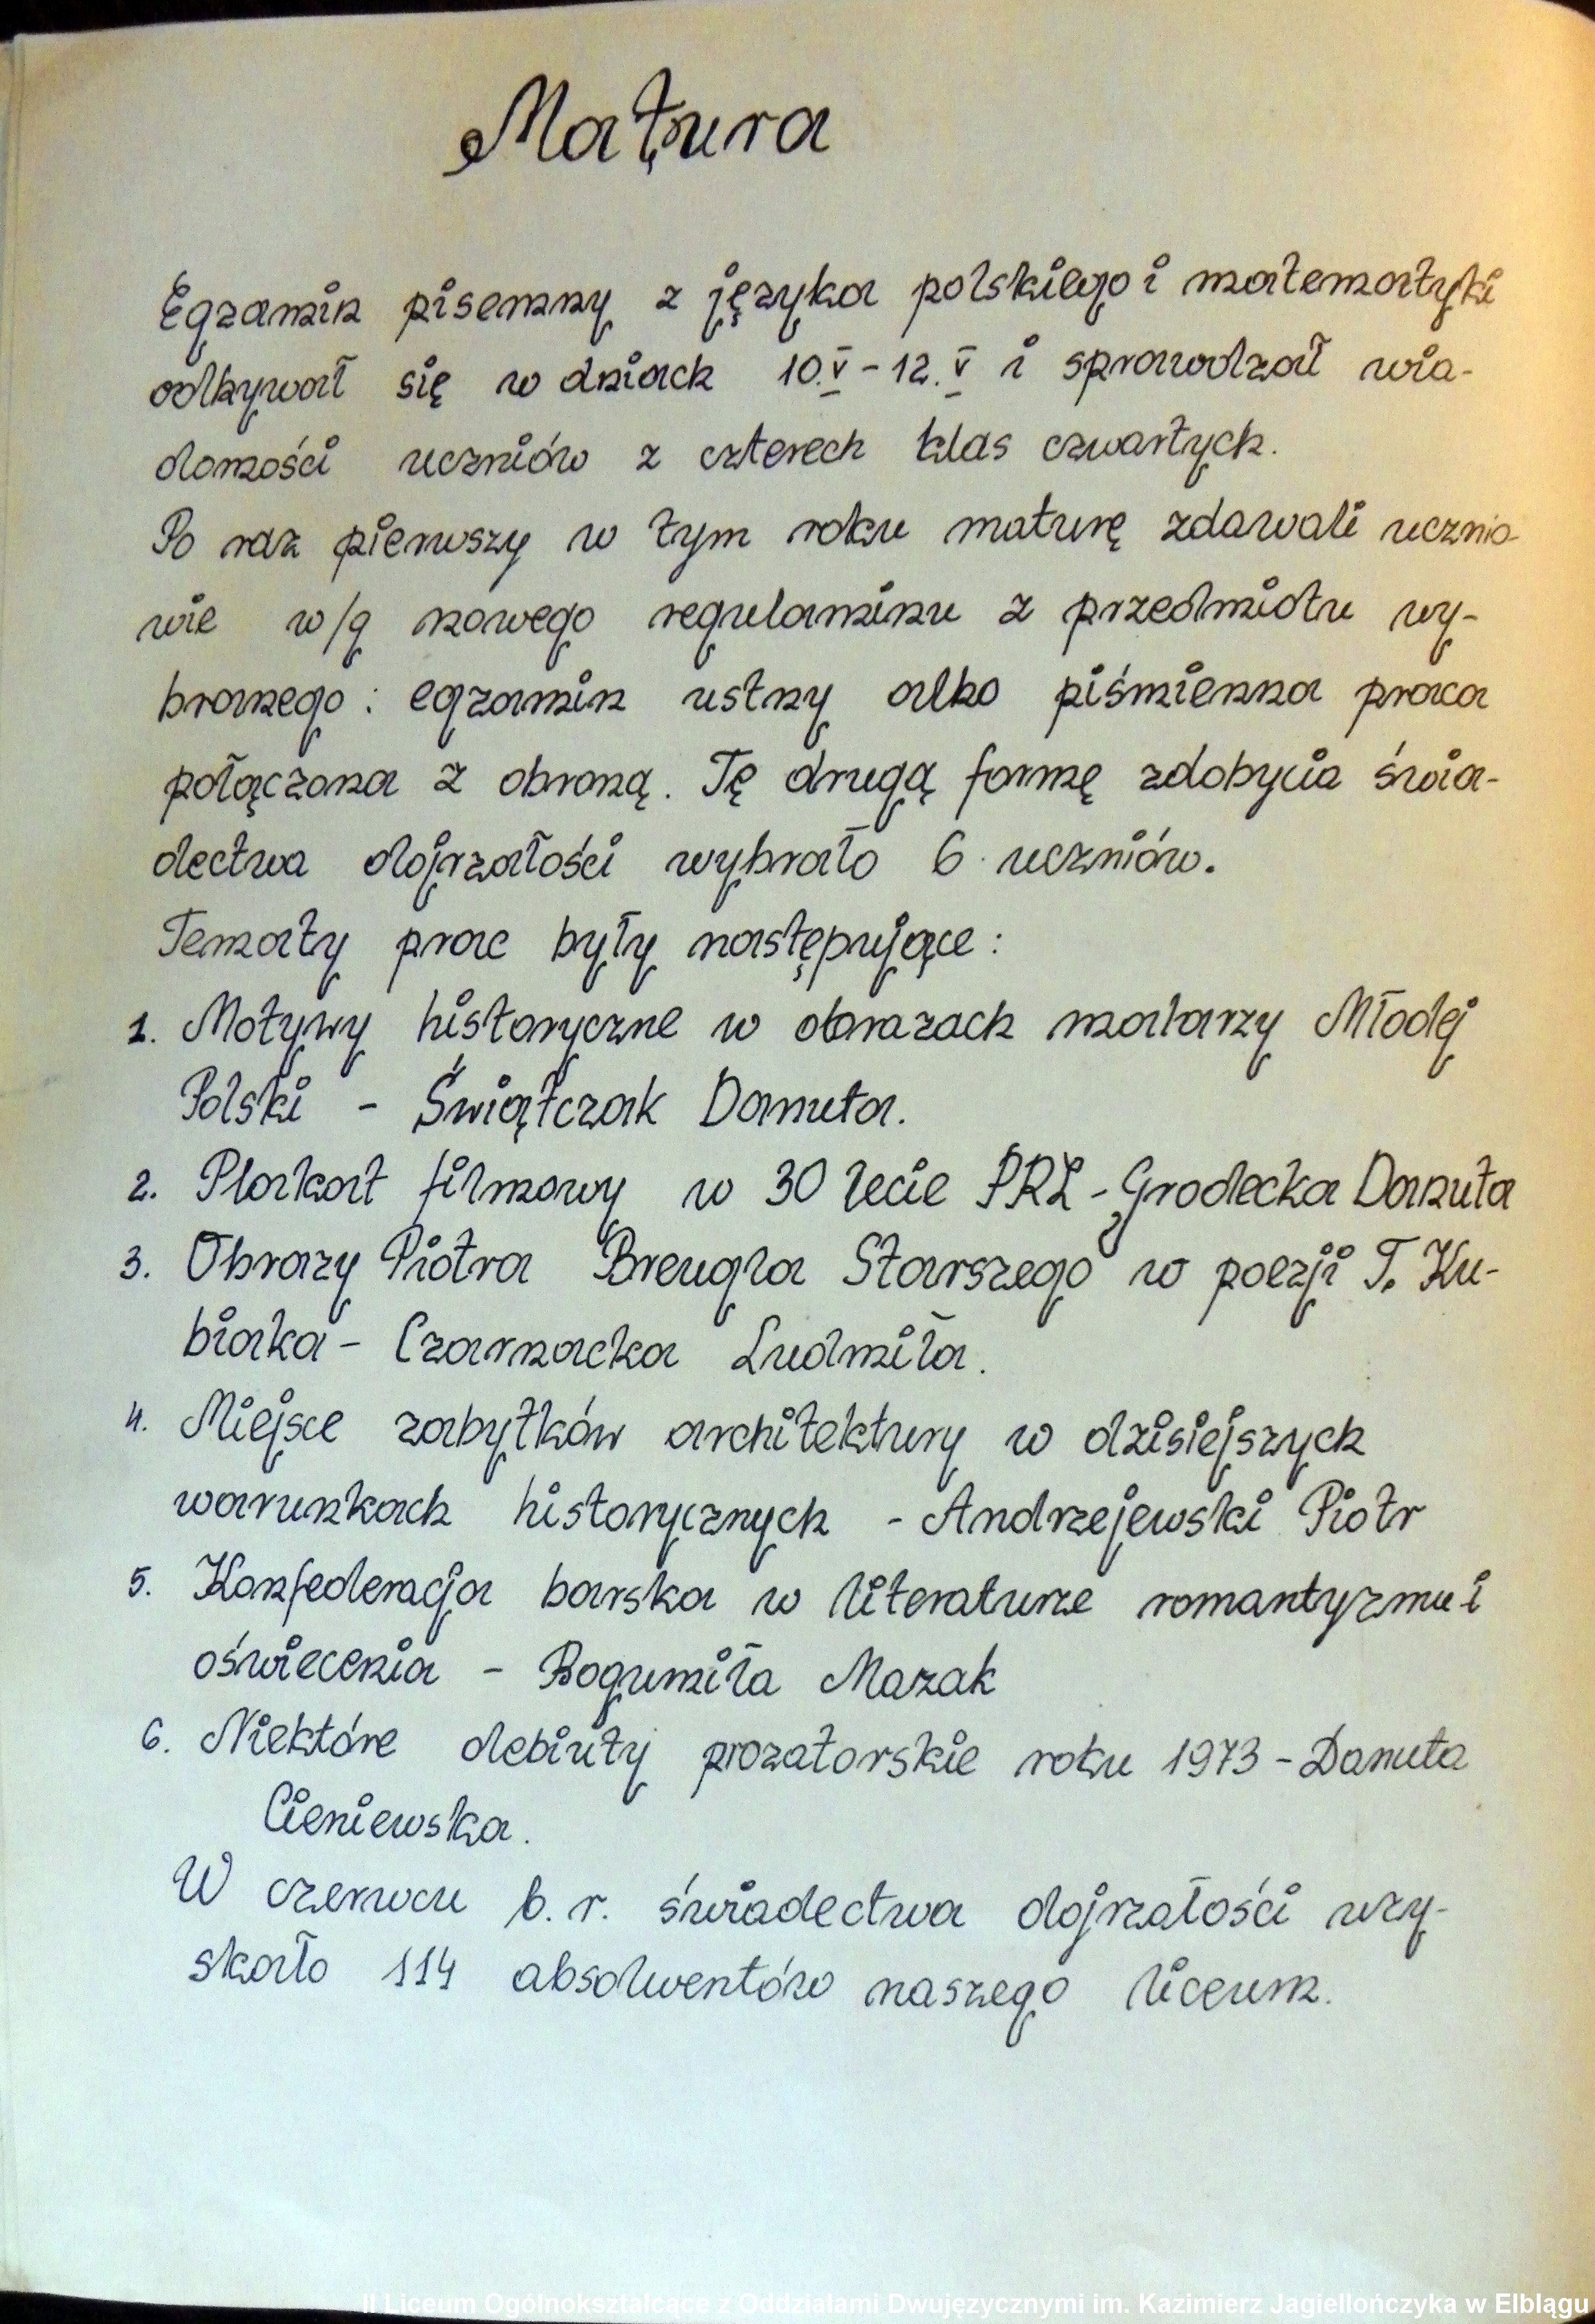 Matura
Egzamin pisemny z języka polskiego i matematyki
odbywał się w dniach 10.V - 12.V i sprawdzał wia-
domości uczniów z czterech klas czwartych.
Po raz pierwszy w tym roku maturę zdawali ucznio-
wie w/g nowego regulaminu z przedmiotu wy-
branego: egzamin ustny albo piśmienna praca
połączona z obroną. Tę drugą formę zdobycia świa-
dectwa dojrzałości wybrało 6 uczniów.
Tematy prac były następujące:
1. Motywy historyczne w obrazach malarzy Młodej
Polski - Świątczak Danuta.
2. Plakat filmowy w 30 lecie PRL - Grodecka Danuta
3. Obrazy Piotra Breugla Starszego w poezji T. Ku-
biaka - Czarnacka Ludmiła.
4. Miejsce zabytków architektury w dzisiejszych
warunkach historycznych - Andrzejewski Piotr
5. Konfederacja barska w literaturze romantyzmu i
oświecenia - Bogumiła Mazak
6. Niektóre debiuty prozatorskie roku 1973 - Danuta
Cieniewska.
W czerwcu b.r. świadectwa dojrzałości uzy-
skało 114 absolwentów naszego liceum.
II Liceum Ogólnokształcące z Oddziałami Dwujęzycznymi im. Kazimierz Jagiellończyka w Elblągu